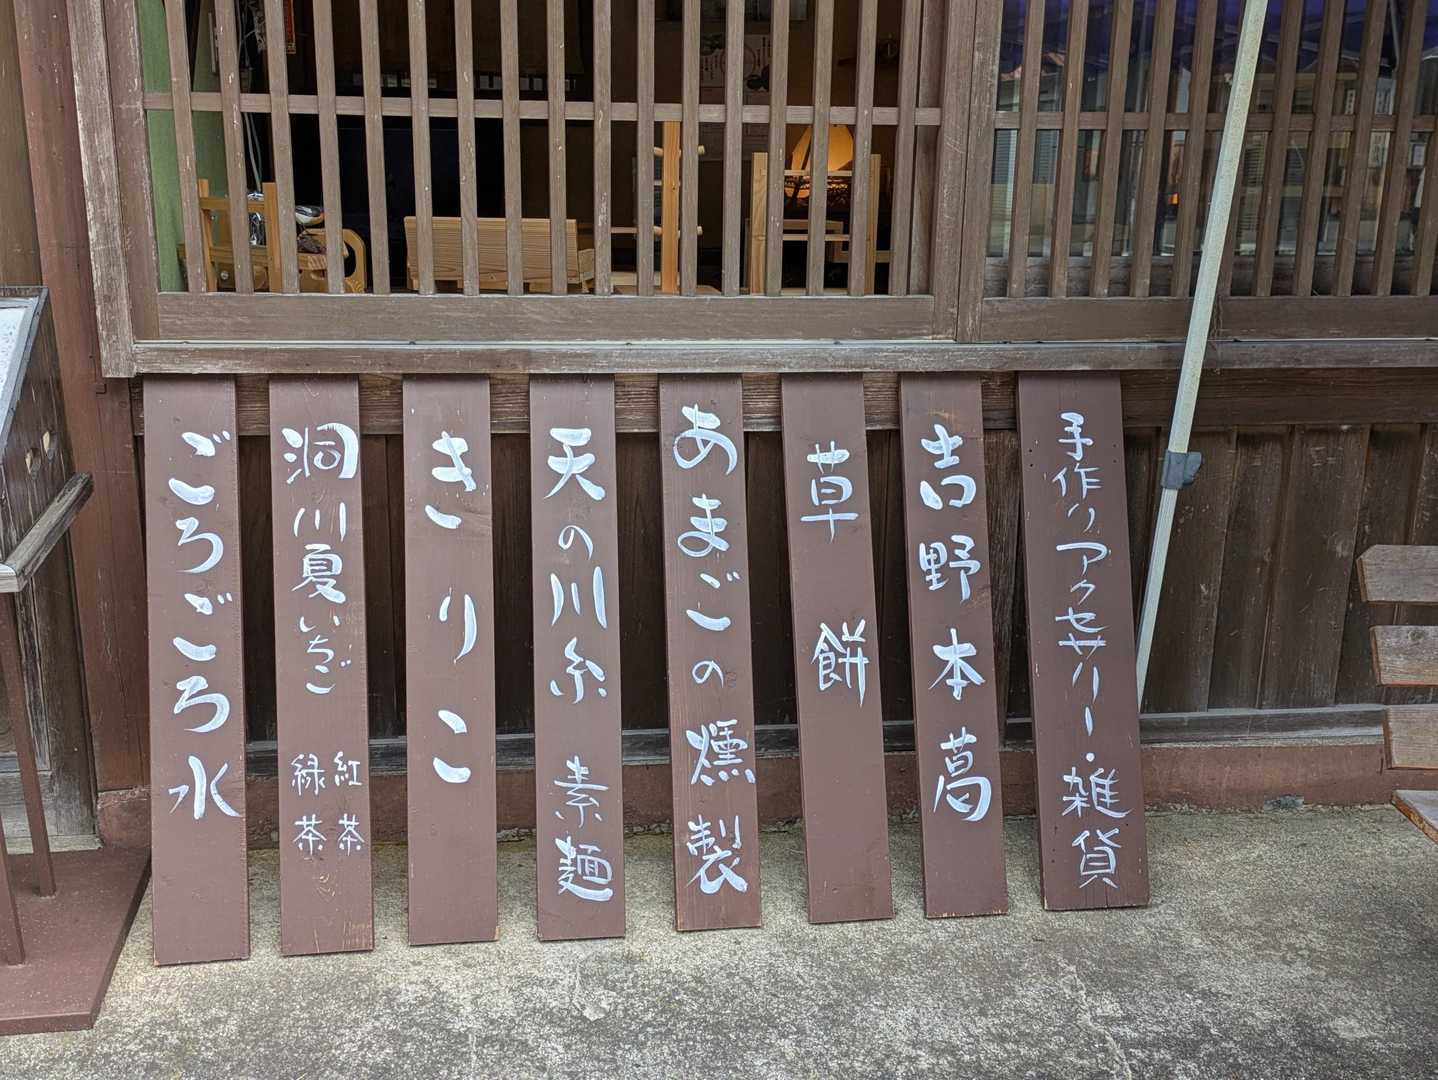 手作りアクセサリー・雑貨
吉野本葛
草餅
あまごの燻製
天の川糸素麺
きりこ
洞川夏いちご
紅茶
緑茶
ごろごろ水